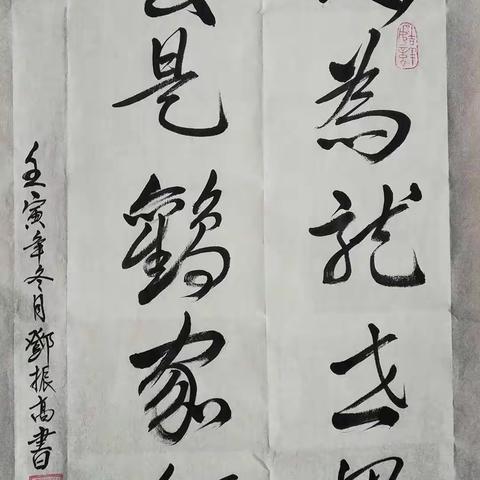 為龍世
是鶴家
壬寅年冬月鄧振高書